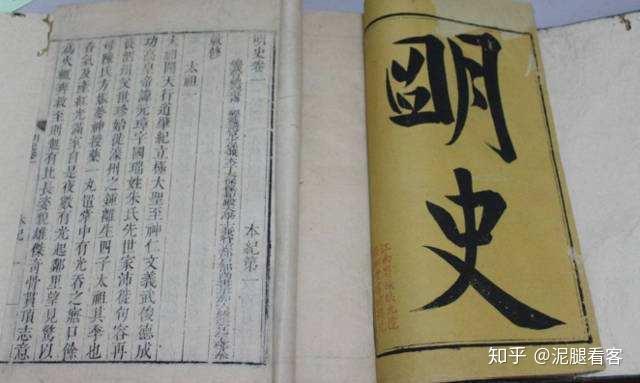 明史
明史卷一
本紀第一
敕修
太祖一
太祖開天行道肇紀立極大聖至神仁文義武俊德成
功高皇帝諱元璋字國瑞姓朱氏先世家沛徙句容再
徙泗州父世珍始徙濠州之鍾離生四子太祖其季也
母陳氏方娠夢神授藥一丸置掌中有光吞之寤口餘
香氣及產紅光滿室自是夜數有光起鄰里望見驚以
為火輒奔救至則無有比長姿貌雄傑奇骨貫頂志意
本紀
知乎 @泥腿看客